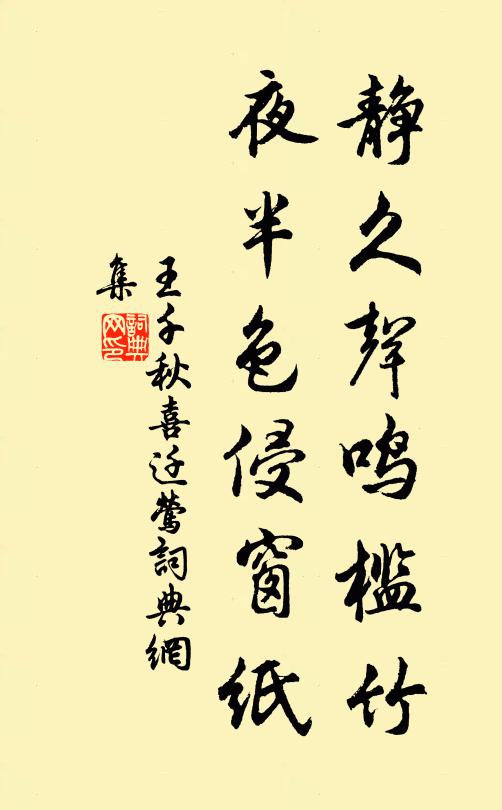 静久聲鸣槛竹
夜半色侵窗纸
王千秋喜迁莺詞典網
集
詞典網印